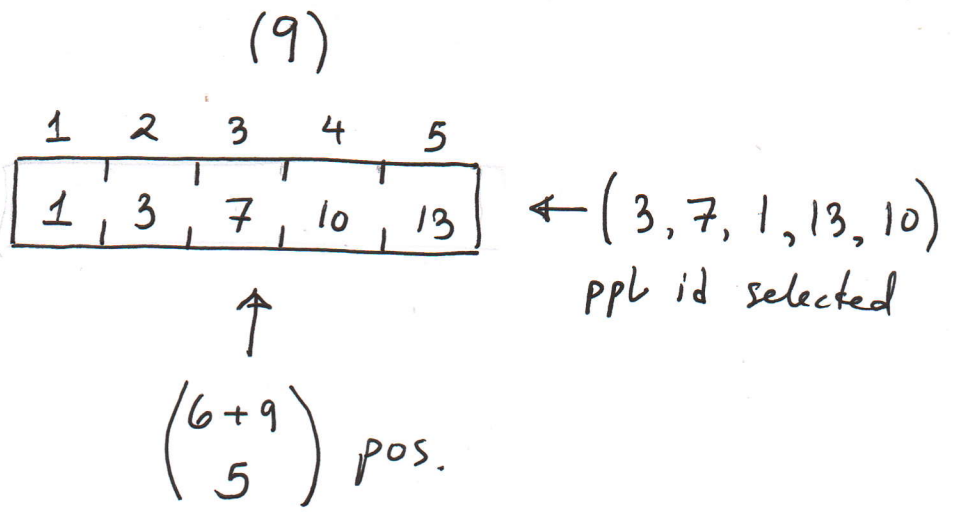 (9)
1 2 3 4 5
1 3 7 10 13 ← (3, 7, 1, 13, 10)
ppl id selected
↑
(6+9
5) pos.